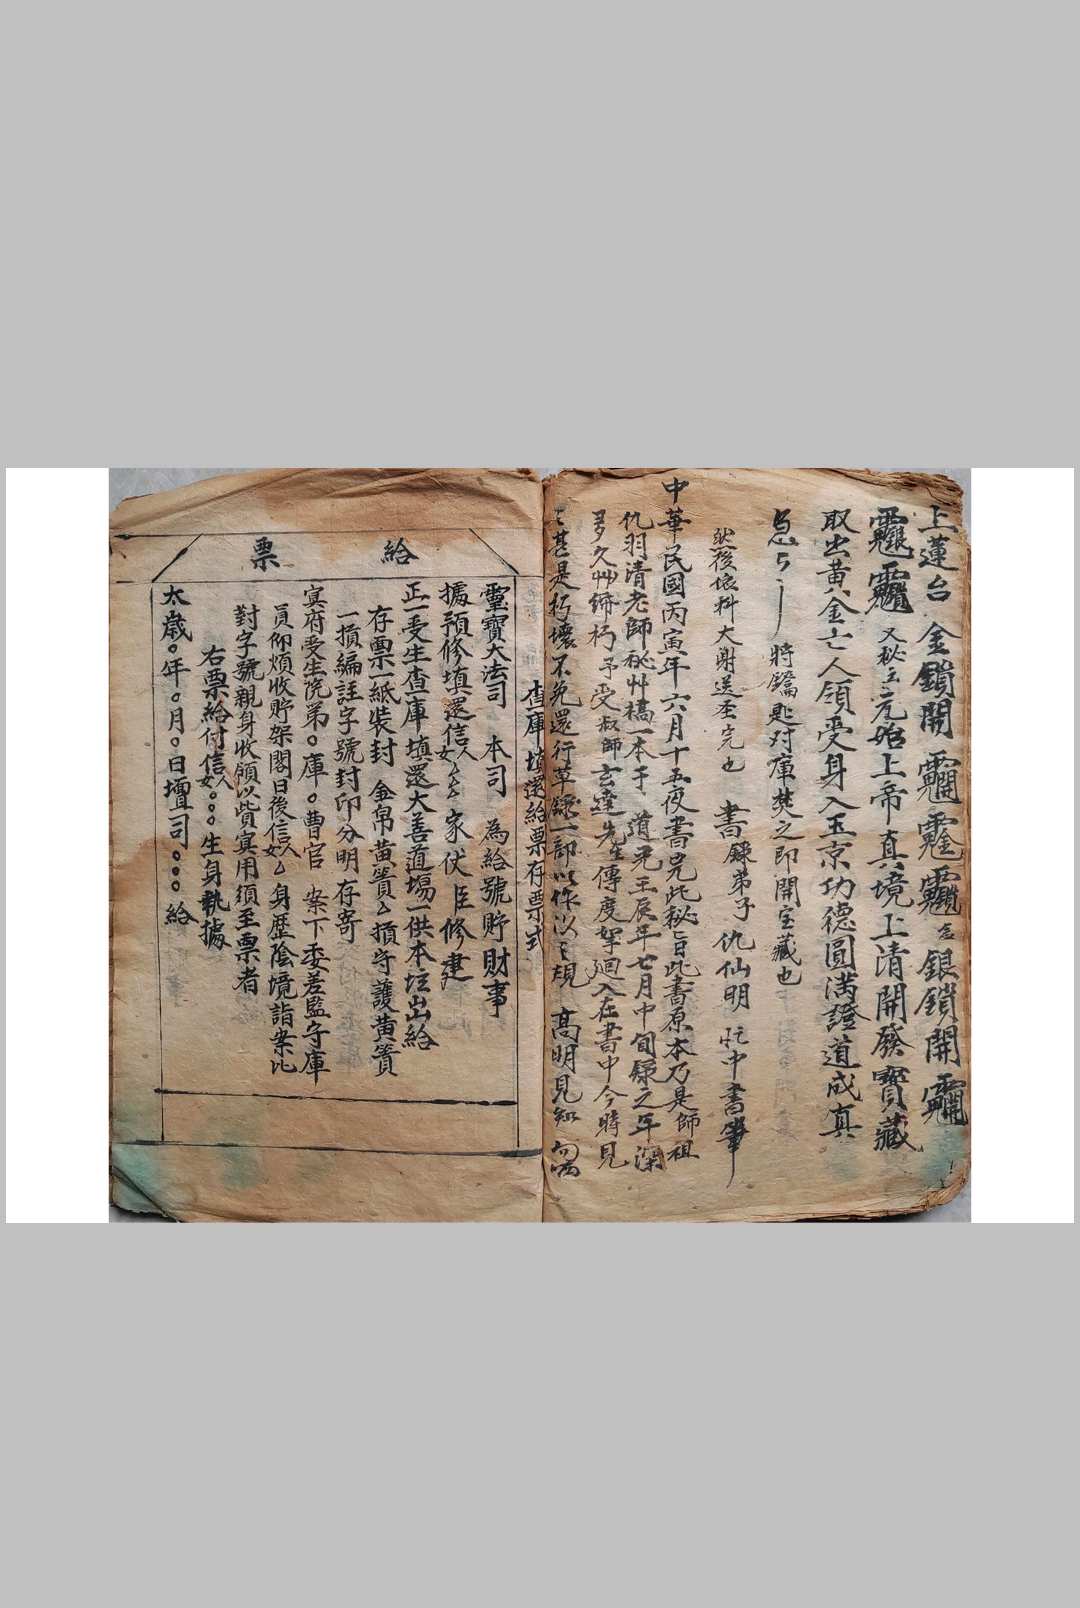 上蓮台 金鎖開 銀鎖開
又秘云元始上帝真境上清開發寶藏
取出黃金亡人領受身入玉京功德圓滿證道成真
急 將鑰匙对庫焚之即開宝藏也
然後 料大謝送圣完也 書錄弟子仇仙明 忙中書筆
中華民國丙寅年六月十五夜書完此秘旨此書原本乃是師祖
仇羽清老師秘艸稿一本于道光壬辰年七月中旬錄之年深
多久艸 朽予受叔師玄達先生傳度 迴入在書中今時見
甚是朽壞不免還行草錄一部以作 規 高明見知
查庫填還給票存票式
給票
靈寶大法司 本司 為給號貯財事
據預修填還信人女厶厶家伏臣修建
正一受生查庫填還大善道場一供本坛出給
存票一紙裝封 金帛黃籫厶損守護黃籫
一損編註字號封印分明存寄
冥府受生院第○庫○曹官 案下委差監守庫
員仰煩收貯架閣日後信人女厶身歷陰境詣案比
對字號親身收領以貲冥用須至票者
右票給付信人女○○○生身執據
太歲○年○月○日壇司○○○給